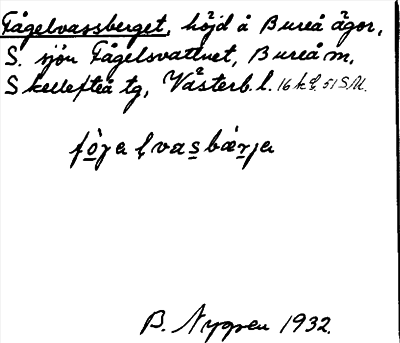 Fågelvassberget, höjd å Bureå ägor,
S. sjön Fågelsvattnet, Bureå m,
Skellefteå tg, Västerb. l. 16 k 9. 51 S.M.
fò̱ja ḷvas̱bæ̱rja
B. Nygren 1932.